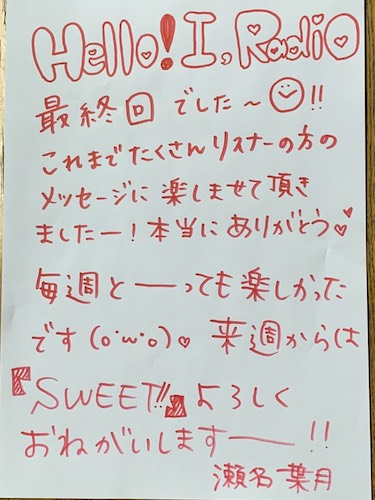 Hello! I, Radio
最終回でした〜!!
これまでたくさんリスナーの方の
メッセージに楽しませて頂き
ましたー!本当にありがとう
毎週とーーっても楽しかった
です(o'w'o) 来週からは
『SWEET!!』よろしく
おねがいしますーー!!
瀬名葉月